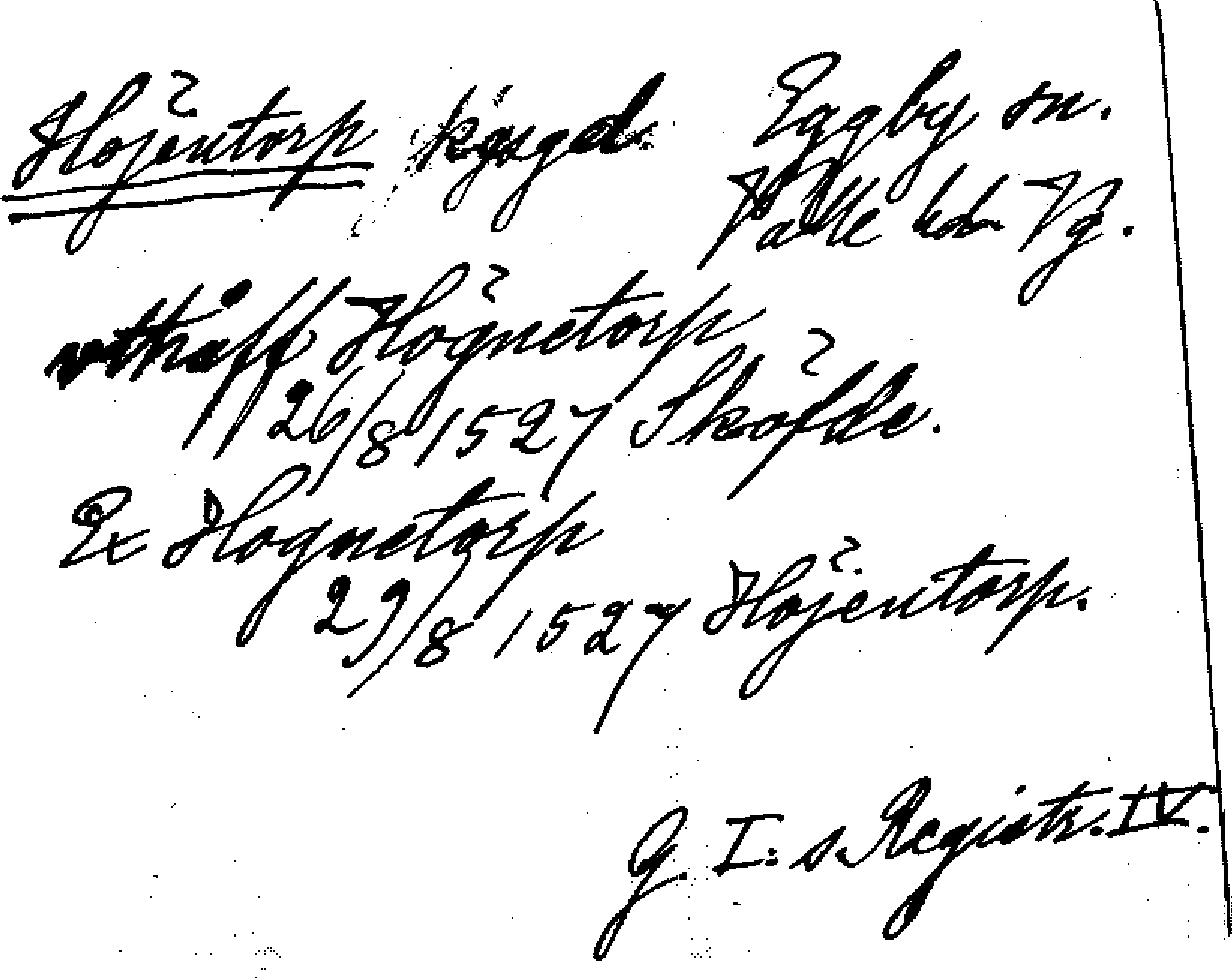 Höjentorp kgsgd. Eggby sn.
Valle hd Vg.
vthåff Högnetorp
26/8 1527 Sköfde.
Ex Hognetorp
29/8 1527 Höjentorp.
G. I:s Registr. IV.